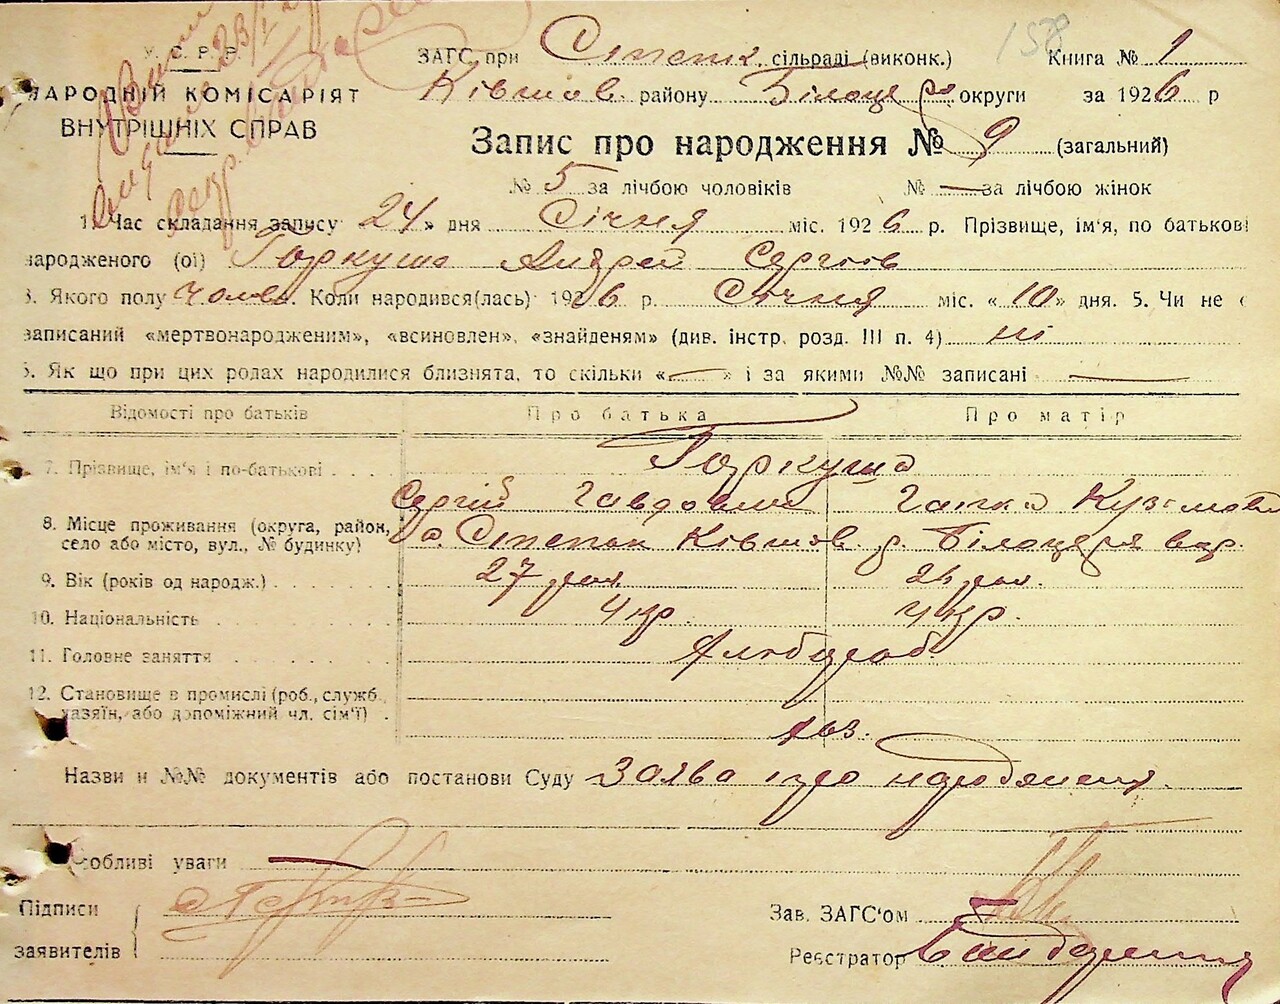 У.С.Р.Р.
НАРОДНІЙ КОМІСАРІЯТ
ВНУТРІШНІХ СПРАВ
158
ЗАГС при Степок. сільраді (виконк.) Книга № 1
Ківшов. району Білоцер. округи за 1926 р
Запис про народження № 9 (загальний)
№ 5 за лічбою чоловіків № — за лічбою жінок
1. Час складання запису 24 » дня Січня міс. 1926 р. Прізвище, ім'я, по батькові
народженого (ої) Гаркуша Андрей Сергієв
3. Якого полу чолов. Коли народився(лась) 1926 р. Січня міс. « 10 » дня. 5. Чи не є
записаний «мертвонародженим», «всиновлен», «знайденям» (див. інстр. розд. III п. 4) ні
6. Як що при цих родах народилися близнята, то скільки «—» і за якими №№ записані —
Відомості про батьків Про батька Про матір
7. Прізвище, ім'я і по-батькові Гаркуша
Сергій
8. Місце проживання (округа, район, село або місто, вул., № будинку) с. Степок Ківшов. р. Білоцеркв окр.
9. Вік (років од народж.) 27 рок. 26 рок.
10. Національність Укр. Укр.
11. Головне заняття хлібороб.
12. Становище в промислі (роб., служб., хазяїн, або допоміжний чл. сім'ї) хаз.
Назви и №№ документів або постанови Суду Заява про народження.
Особливі уваги —
Підписи
заявителів
Зав. ЗАГС'ом
Реєстратор